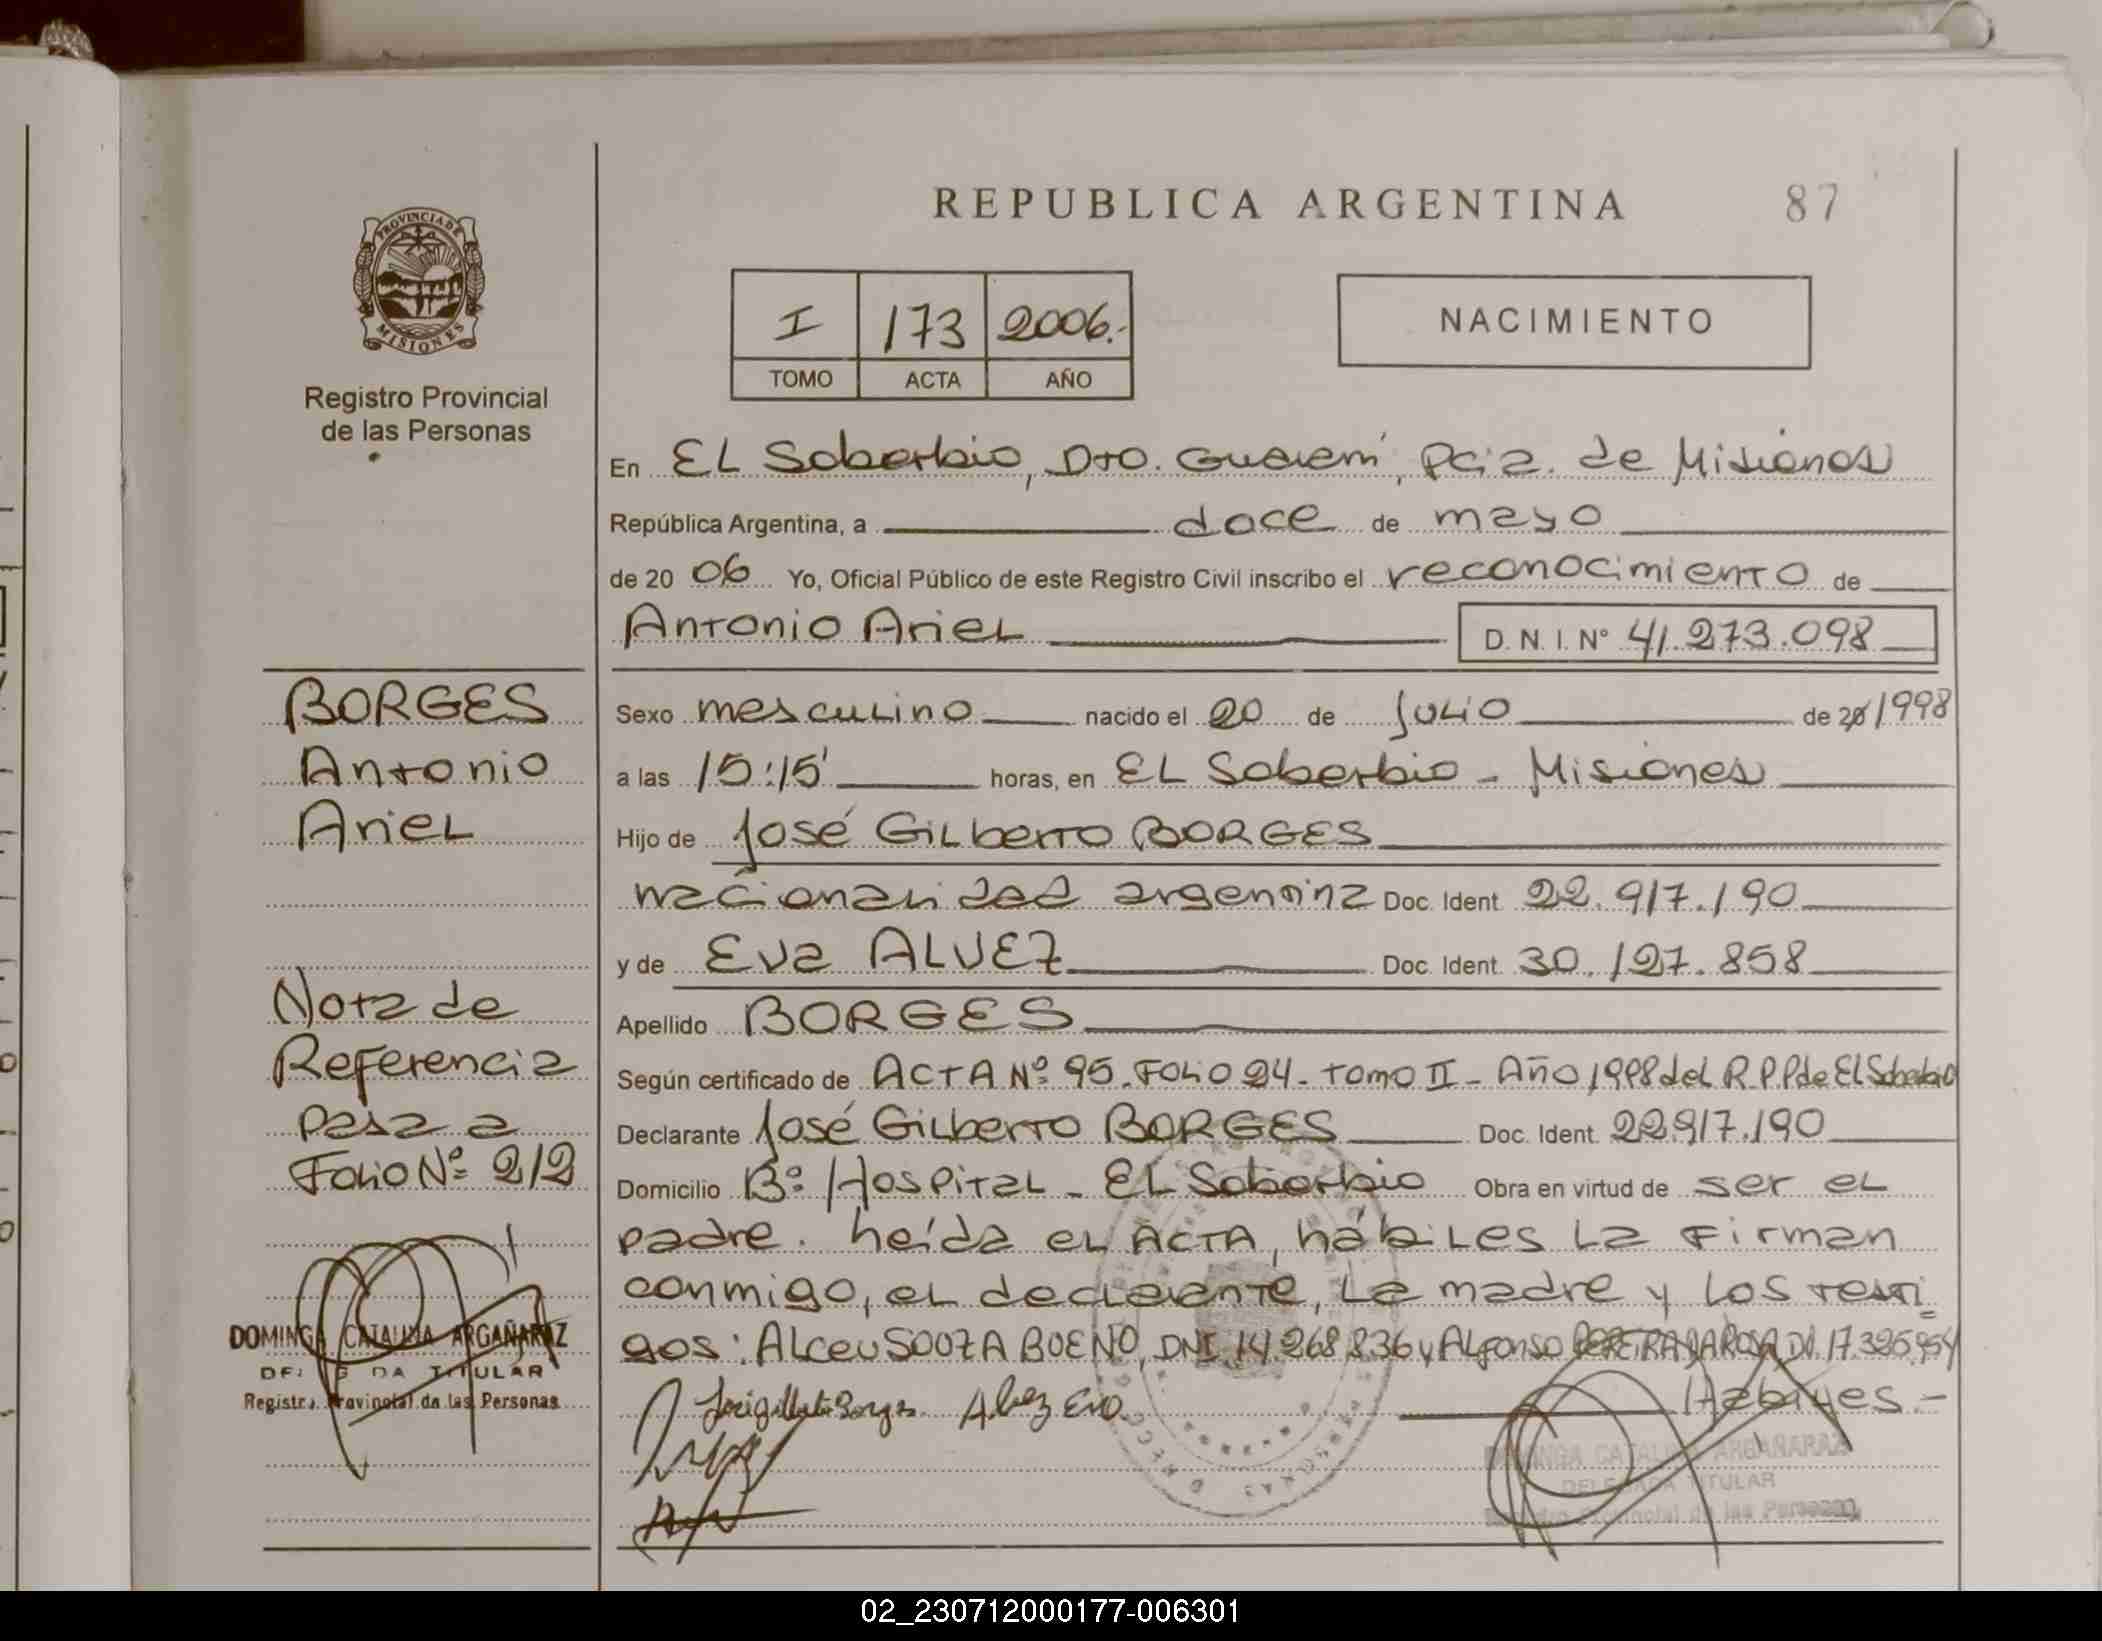 REPUBLICA ARGENTINA
87
PROVINCIA DE
MISIONES
Registro Provincial
de las Personas
I 173 2006.-
TOMO ACTA AÑO
NACIMIENTO
En EL Soberbio, Dto. Guaraní, Pcia. de Misiones
República Argentina, a doce de mayo
de 2006 Yo, Oficial Público de este Registro Civil inscribo el reconocimiento de
Antonio Ariel D. N. I. N° 41.273.098
BORGES
Antonio
Ariel
Sexo masculino nacido el 20 de Julio de 20/1998
a las 15:15' horas, en EL Soberbio - Misiones
Hijo de José Gilberto BORGES
nacionalidad argentina Doc. Ident. 22.917.190
y de Eva ALVEZ Doc. Ident. 30.127.858
Apellido BORGES
Según certificado de ACTA Nº 95. Folio 24 - Tomo II - Año 1998 del R.P.P de El Soberbio
Declarante José Gilberto BORGES Doc. Ident. 22.917.190
Domicilio Bº Hospital - EL Soberbio Obra en virtud de ser el
padre. Leída el ACTA, hábiles la firman
conmigo, el declarante, la madre y los testi
gos: Alceu SOUZA BUENO, DNI. 14.268.836 y Alfonso PEREIRA DA ROSA DNI. 17.325.954
Hábiles.-
Nota de
Referencia
Pasa a
Folio Nº 212
DOMINGA CATALINA ARGAÑARAZ
DELEGADA TITULAR
Registro Provincial de las Personas
Alvez Eva
DOMINGA CATALINA ARGAÑARAZ
DELEGADA TITULAR
Registro Provincial de las Personas
02_230712000177-006301